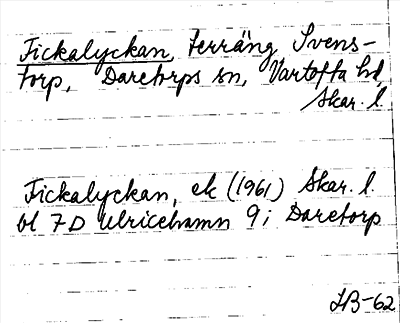 Fickalyckan, terräng Svens-
torp, Daretorps sn, Vartofta hd,
Skar. l.
Fickalyckan, ek (1961) Skar. l.
bl 7D Ulricehamn 9i Daretorp
IB-62